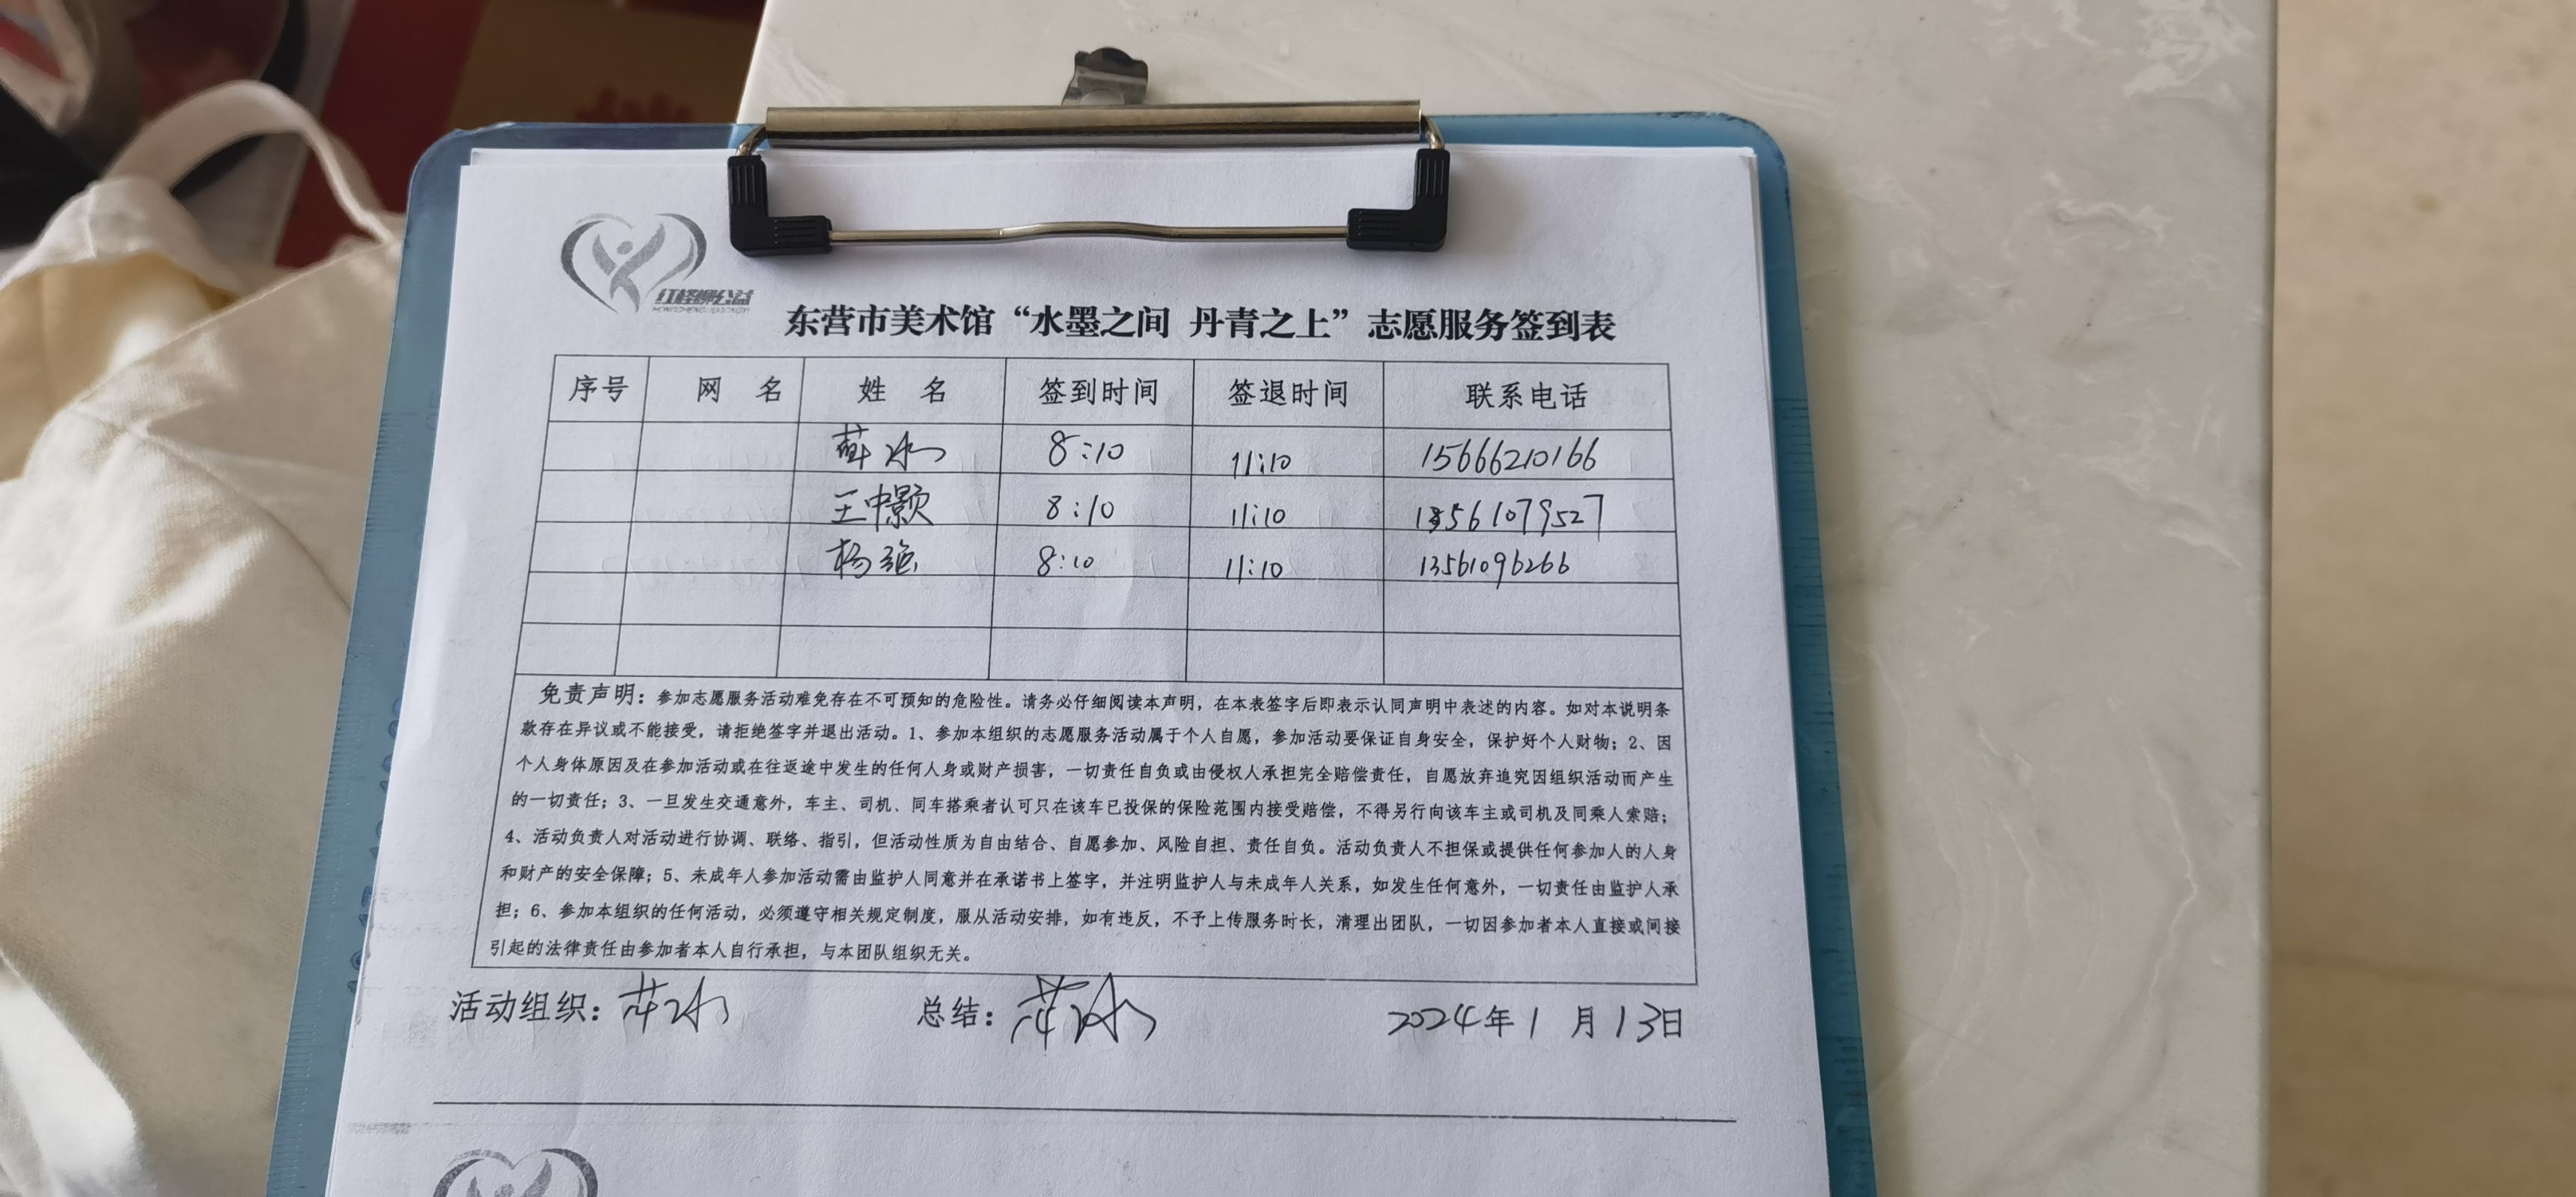 红柽柳公益
东营市美术馆“水墨之间 丹青之上”志愿服务签到表
序号 网 名 姓 名 签到时间 签退时间 联系电话
薛冰 8:10 11:10 15666210166
王中颢 8:10 11:10 13561079527
杨强 8:10 11:10 13561096266
免责声明：参加志愿服务活动难免存在不可预知的危险性。请务必仔细阅读本声明，在本表签字后即表示认同声明中表述的内容。如对本说明条
款存在异议或不能接受，请拒绝签字并退出活动。1、参加本组织的志愿服务活动属于个人自愿，参加活动要保证自身安全，保护好个人财物；2、因
个人身体原因及在参加活动或在往返途中发生的任何人身或财产损害，一切责任自负或由侵权人承担完全赔偿责任，自愿放弃追究因组织活动而产生
的一切责任；3、一旦发生交通意外，车主、司机、同车搭乘者认可只在该车已投保的保险范围内接受赔偿，不得另行向该车主或司机及同乘人索赔；
4、活动负责人对活动进行协调、联络、指引，但活动性质为自由结合、自愿参加、风险自担、责任自负。活动负责人不担保或提供任何参加人的人身
和财产的安全保障；5、未成年人参加活动需由监护人同意并在承诺书上签字，并注明监护人与未成年人关系，如发生任何意外，一切责任由监护人承
担；6、参加本组织的任何活动，必须遵守相关规定制度，服从活动安排，如有违反，不予上传服务时长，清理出团队，一切因参加者本人直接或间接
引起的法律责任由参加者本人自行承担，与本团队组织无关。
活动组织：薛冰 总结：薛冰 2024年1月13日